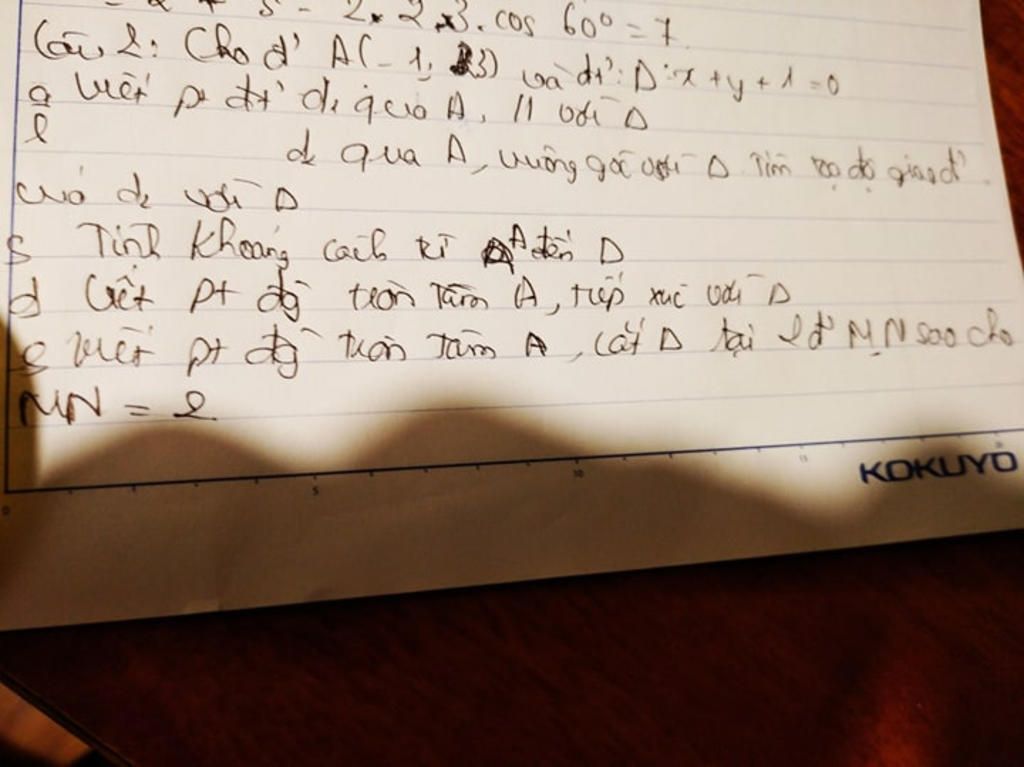 - 2 + 3 - 2.2.3.cos 60° = 7
Câu 2: Cho đ' A(-1; 3) và đt': Δ: x+y+1=0
a Viết pt đt' d₁ qua A, // với Δ
b d₂ qua A, vuông góc với Δ. Tìm toạ độ giao đ'
của d₂ với Δ
c Tính khoảng cách từ A đến Δ
d Viết pt đg tròn tâm A, tiếp xúc với Δ
e Viết pt đg tròn tâm A, cắt Δ tại 2 đ' M, N sao cho
MN = 2
0 5 10 15 20
KOKUYO